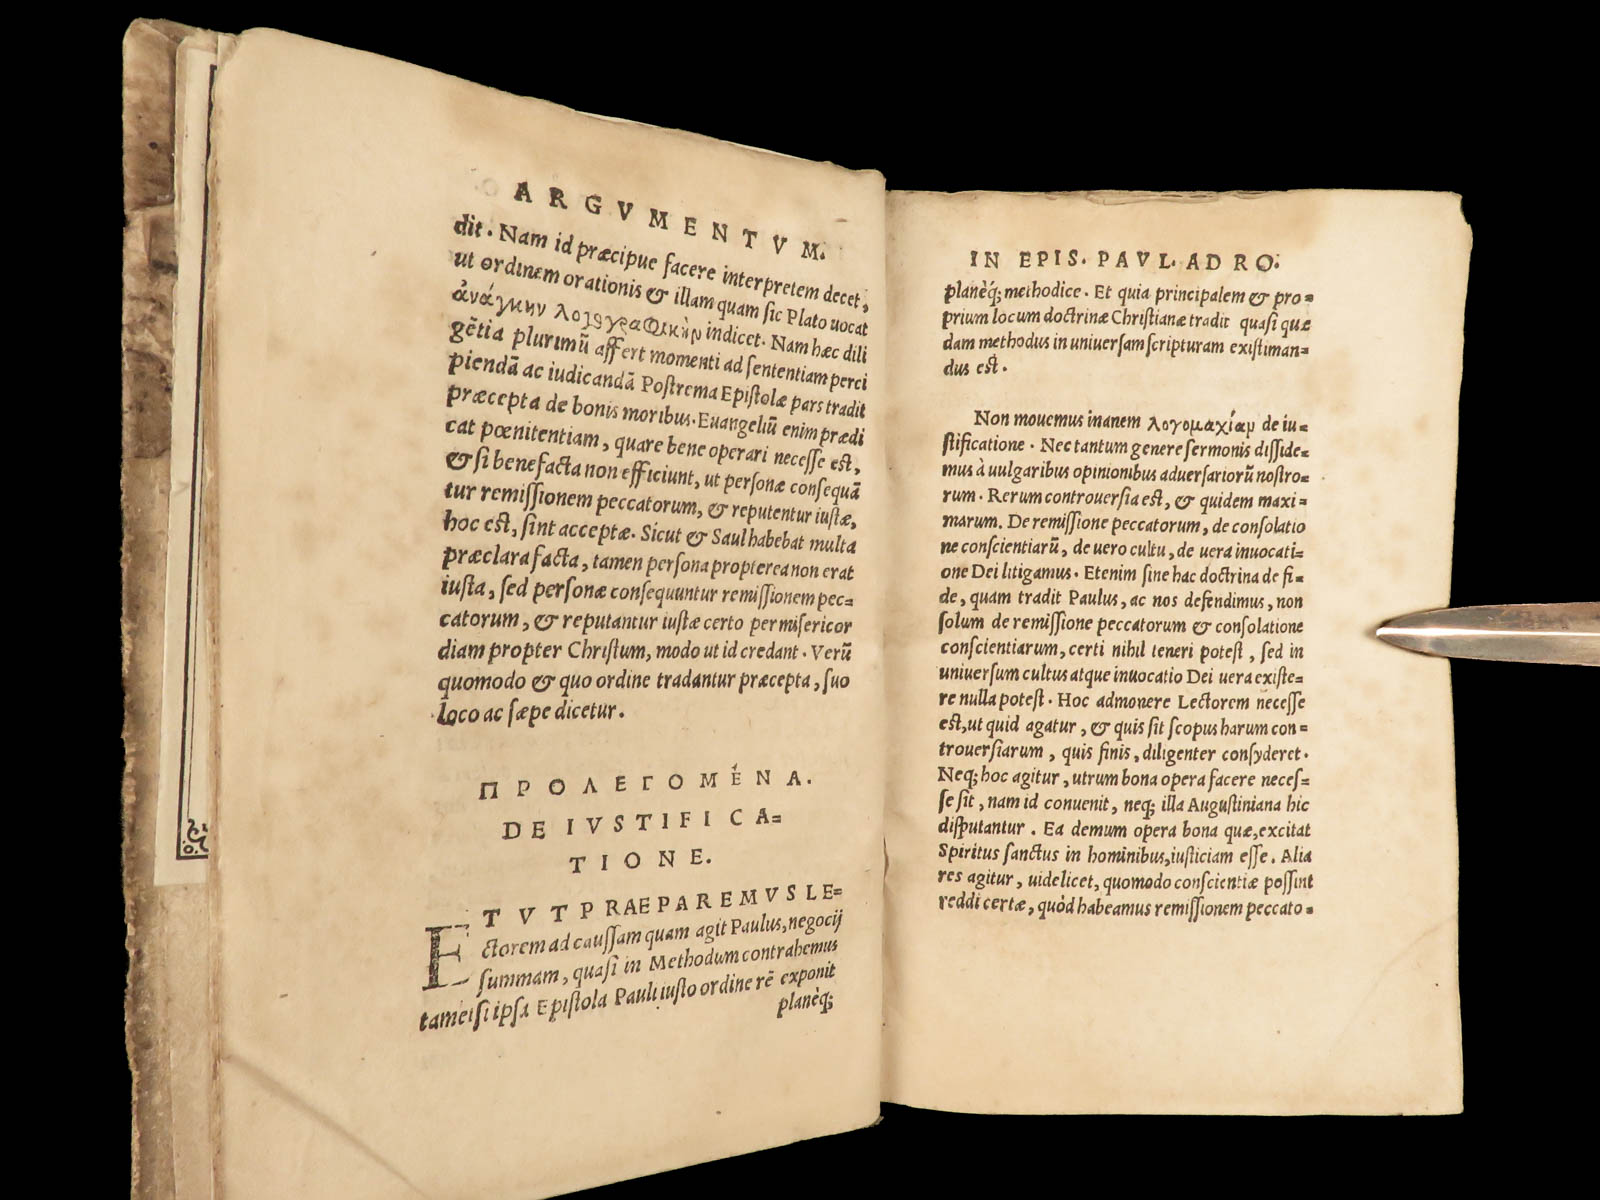 ARGVMENTVM.
dit. Nam id præcipue facere interpretem decet,
ut ordinem orationis & illam quam sic Plato uocat
ἀνάγκην λογογραφικὴν indicet. Nam hæc dili
gẽtia plurimũ affert momenti ad sententiam perci
piendã ac iudicandã Postrema Epistolæ pars tradit
præcepta de bonis moribus. Euangeliũ enim prædi
cat pœnitentiam, quare bene operari necesse est,
& si benefacta non efficiunt, ut personæ consequã
tur remissionem peccatorum, & reputentur iustæ,
hoc est, sint acceptæ. Sicut & Saul habebat multa
præclara facta, tamen persona propterea non erat
iusta, sed personæ consequuntur remissionem pec=
catorum, & reputantur iustæ certo per misericor
diam propter Christum, modo ut id credant. Verũ
quomodo & quo ordine tradantur præcepta, suo
loco ac sæpe dicetur.
ΠΡΟΛΕΓΟΜΈΝΑ.
DE IVSTIFICA=
TIONE.
ET VT PRAEPAREMVS LE=
ctorem ad caussam quam agit Paulus, negocij
summam, quasi in Methodum contrahemus
tametsi ipsa Epistola Pauli iusto ordine rẽ exponit
planèq;
IN EPIS. PAVL. AD RO.
planèq; methodice. Et quia principalem & pro=
prium locum doctrinæ Christianæ tradit quasi quæ
dam methodus in uniuersam scripturam existiman=
dus est.
Non mouemus inanem λογομαχίαν de iu=
stificatione. Nec tantum genere sermonis disside=
mus à uulgaribus opinionibus aduersariorũ nostro=
rum. Rerum controuersia est, & quidem maxi=
marum. De remissione peccatorum, de consolatio
ne conscientiarũ, de uero cultu, de uera inuocati=
one Dei litigamus. Etenim sine hac doctrina de fi=
de, quam tradit Paulus, ac nos defendimus, non
solum de remissione peccatorum & consolatione
conscientiarum, certi nihil teneri potest, sed in
uniuersum cultus atque inuocatio Dei uera existe=
re nulla potest. Hoc admonere Lectorem necesse
est, ut quid agatur, & quis sit scopus harum con=
trouersiarum, quis finis, diligenter consyderet.
Neq; hoc agitur, utrum bona opera facere neces=
se sit, nam id conuenit, neq; illa Augustiniana hic
disputantur. Ea demum opera bona quæ, excitat
Spiritus sanctus in hominibus, iusticiam esse. Alia
res agitur, uidelicet, quomodo conscientiæ possint
reddi certæ, quòd habeamus remissionem peccato=